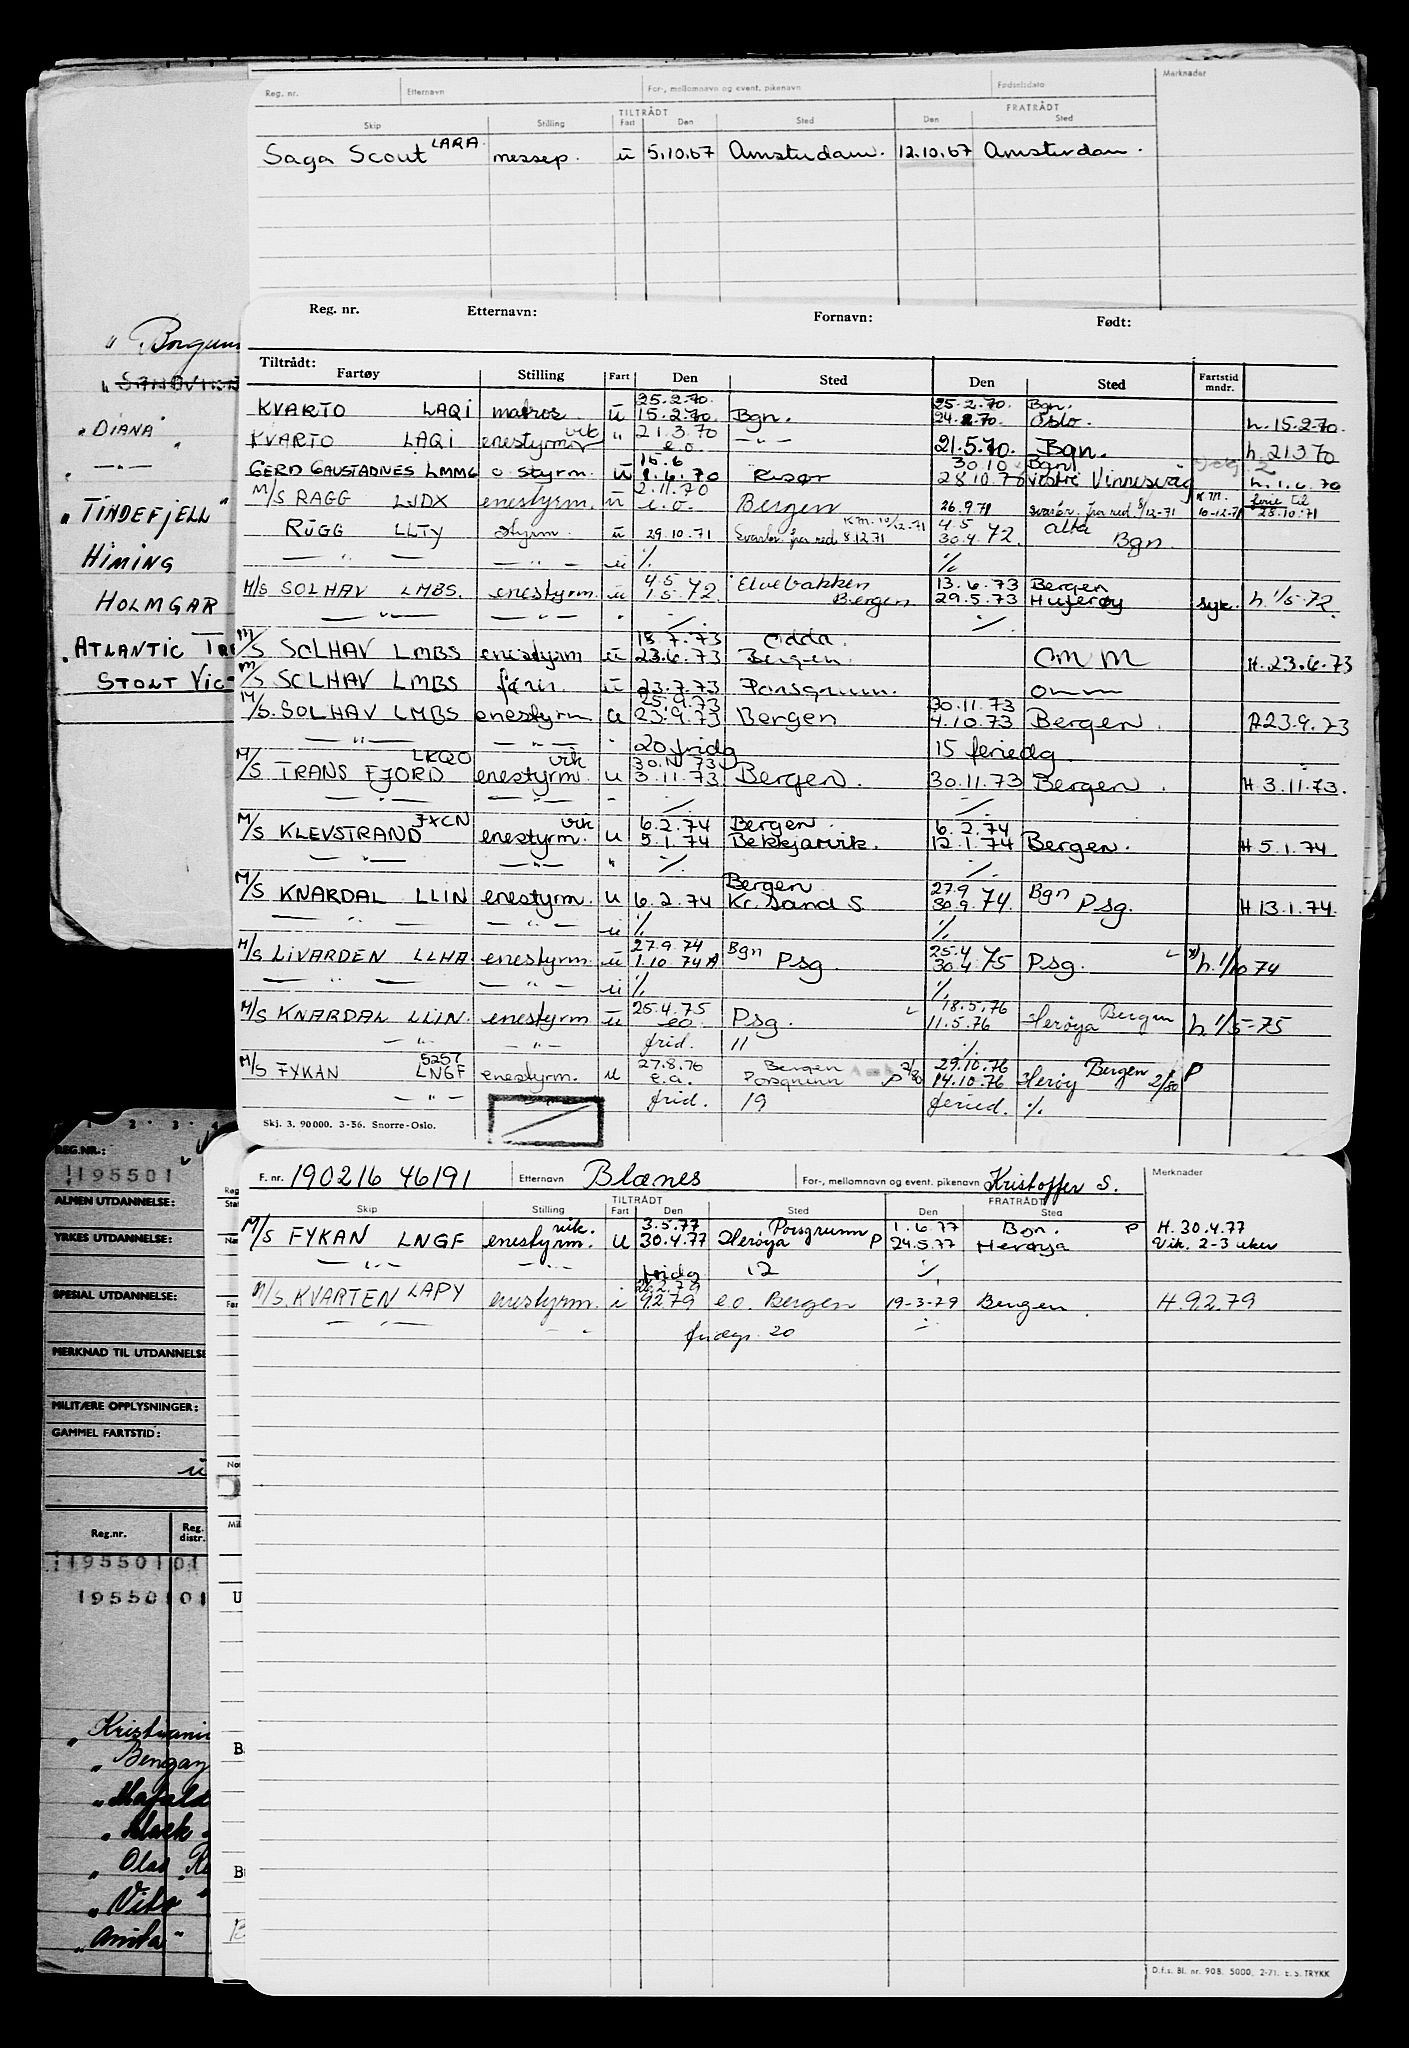 Reg. nr. Etternavn For-, mellomnavn og event. pikenavn Fødselsdato Merknader
TILTRÅDT FRATRÅDT
Skip Stilling Fart Den Sted Den Sted
Saga Scout LARA messep. ū 5.10.67 Amsterdam. 12.10.67 Amsterdam.
" Borgun
" DIANA "
" — " —
" TINDEFJELL "
HIMING
HOLMGAR
" ATLANTIC TR
STOLT VIC
Reg. nr. Etternavn: Fornavn: Født:
Tiltrådt:
Fartøy Stilling Fart Den Sted Den Sted Fartstid mndr.
25.2.70. 25.2.70. Bgn.
KVARTO LAQI matros ū 15.2.70. Bgn. 24.2.70. Oslo. h. 15.2.70.
KVARTO LAQI enestyrm vik " 21.3.70 — " — 21.5.70. Bgn. h. 21370
e.o
15.6 30.10 Bgn
GERD GAUSTADNES LMMG o. styrm. ū 1.6.70 Risør 28.10.70 Vestre Vinnesvåg h. 1.6.70
2.11.70
M/S RAGG LJDX enestyrm. ū e.o. Bergen 26.9.71 svarbr. fra red 8/12-71 K.M. 10-12-71 ferie til 28.10.71
RUGG LLTY styrm. ū 29.10.71 Svarbr. fra red 8.12.71 K.M. 10/12-71 4.5 30.4.72. Alta Bgn.
— " — — " — ū ·/. ·/.
4.5 Elvebakken 13.6.73 Bergen
M/S SOLHAV LMBS. enestyrm. ū 1.5.72. Bergen 29.5.73 Husøy syk. h. 1/5-72
— " — — " — " ·/. ·/.
18.7.73 Odda.
M/S SOLHAV LMBS enestyrm ū 23.6.73 Bergen. omm H. 23.6.73
M/S SOLHAV LMBS ū 23.7.73 Porsgrunn. omm
25.9.73 30.11.73
M/S. SOLHAV LMBS enestyrm u 23.9.73 Bergen 4.10.73 Bergen. H 23.9.73
— " — — " — " 20 fridg 15 feriedg
M/S TRANS FJORD LKQO enestyrm. vik u 30.11.73 3.11.73 Bergen. 30.11.73 Bergen. H. 3.11.73.
— " — — " — " ·/. ·/.
6.2.74 Bergen. 6.2.74
M/S KLEVSTRAND JXCN enestyrm. vik u 5.1.74 Bekkjarvik. 12.1.74 Bergen. H 5.1.74
— " — — " — " ·/. ·/.
Bergen 27.9 Bgn
M/S KNARDAL LLIN enestyrm. u 6.2.74 Kr. sand S. 30.9.74. Psg. H 13.1.74.
— " — — " — ū ·/. ·/.
27.9.74 Bgn 25.4
M/S LIVARDEN LLHA enestyrm. ū 1.10.74 A Psg. 30.4.75 Psg. h. 1/10 74
— " — — " — ū ·/. ·/.
25.4.75 18.5.76 Bergen
M/S KNARDAL LLIN. enestyrm ū e.o. Psg. 11.5.76 Herøya h 1/5-75
— " — — " — frid. 11 ·/.
5257 27.8.76 Bergen 29.10.76 Bergen
M/S FYKAN LNGF enestyrm. u e.å. Porsgrunn P 2/80 14.10.76 Herøy 2/80 P
— " — — " — frid. 19 feried. ·/.
Skj. 3. 90000. 3-56. Snorre-Oslo.
REG.NR.:
195501
ALMEN UTDANNELSE:
YRKES UTDANNELSE:
SPESIAL UTDANNELSE:
MERKNAD TIL UTDANNELSE
MILITÆRE OPPLYSNINGER:
GAMMEL FARTSTID:
ū
Reg.nr. Reg. distr.
195501 01
195501 01
" Kristiani
" Bengay
" Black
" Olav
" Vito "
" Anita "
F. nr. 190216 46191 Etternavn Blænes For-, mellomnavn og event. pikenavn Kristoffer S. Merknader
TILTRÅDT FRATRÅDT
Skip Stilling Fart Den Sted Den Sted
3.5.77 Porsgrunn 1.6.77 Bgn. P H. 30.4.77
M/S FYKAN LNGF enestyrm. vik. u 30.4.77 Herøya P 24.5.77 Herøya Vik. 2-3 uker
— " — — " — fridg 12 ·/.
26.2.79
M/S. KVARTEN LAPY enestyrm. i 9.2.79 e.o. Bergen 19-3-79 Bergen. H. 9.2.79
— " — — " — 20 ·/.
D.f.s. Bl. nr. 90B. 5000. 2-71. E.S. TRYKK